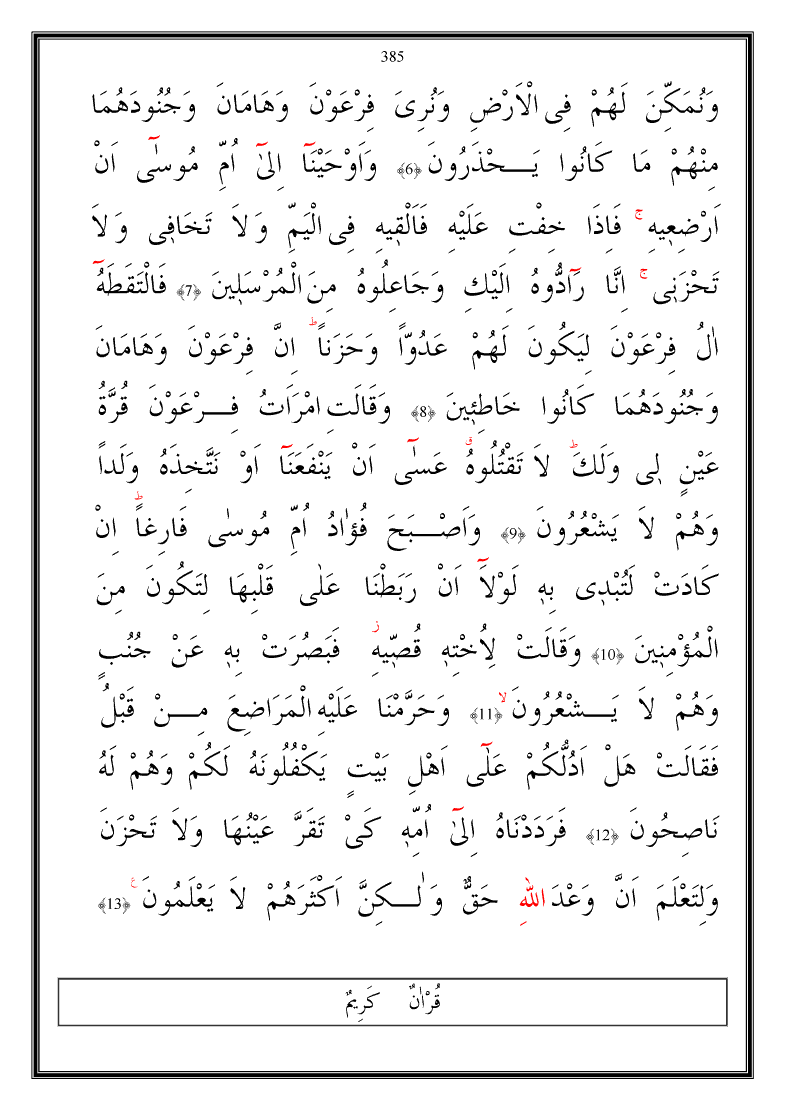 385
وَنُمَكِّنَ لَهُمْ فِى الْاَرْضِ وَنُرِىَ فِرْعَوْنَ وَهَامَانَ وَجُنُودَهُمَا
مِنْهُمْ مَا كَانُوا يَـــحْذَرُونَ ﴿6﴾ وَاَوْحَيْنَٓا اِلىٰٓ اُمِّ مُوسٰٓى اَنْ
اَرْضِعٖيهِ ۚ فَاِذَا خِفْتِ عَلَيْهِ فَاَلْقٖيهِ فِى الْيَمِّ وَلَا تَخَافٖى وَلَا
تَحْزَنٖى ۚ اِنَّا رَٓادُّوهُ اِلَيْكِ وَجَاعِلُوهُ مِنَ الْمُرْسَلٖينَ ﴿7﴾ فَالْتَقَطَهُٓ
اٰلُ فِرْعَوْنَ لِيَكُونَ لَهُمْ عَدُوّاً وَحَزَناًؕ اِنَّ فِرْعَوْنَ وَهَامَانَ
وَجُنُودَهُمَا كَانُوا خَاطِئٖينَ ﴿8﴾ وَقَالَتِ امْرَاَتُ فِـــرْعَوْنَ قُرَّةُ
عَيْنٍ لٖى وَلَكَؕ لَا تَقْتُلُوهُۗ عَسٰٓى اَنْ يَنْفَعَنَٓا اَوْ نَتَّخِذَهُ وَلَداً
وَهُمْ لَا يَشْعُرُونَ ﴿9﴾ وَاَصْـــبَحَ فُؤٰادُ اُمِّ مُوسٰى فَارِغاًؕ اِنْ
كَادَتْ لَتُبْدٖى بِهٖ لَوْلَٓا اَنْ رَبَطْنَا عَلٰى قَلْبِهَا لِتَكُونَ مِنَ
الْمُؤْمِنٖينَ ﴿10﴾ وَقَالَتْ لِاُخْتِهٖ قُصّٖيهِؗ فَبَصُرَتْ بِهٖ عَنْ جُنُبٍ
وَهُمْ لَا يَـــشْعُرُونَۙ ﴿11﴾ وَحَرَّمْنَا عَلَيْهِ الْمَرَاضِعَ مِـــنْ قَبْلُ
فَقَالَتْ هَلْ اَدُلُّكُمْ عَلٰٓى اَهْلِ بَيْتٍ يَكْفُلُونَهُ لَكُمْ وَهُمْ لَهُ
نَاصِحُونَ ﴿12﴾ فَرَدَدْنَاهُ اِلىٰٓ اُمِّهٖ كَىْ تَقَرَّ عَيْنُهَا وَلَا تَحْزَنَ
وَلِتَعْلَمَ اَنَّ وَعْدَ اللهِ حَقٌّ وَلٰـــكِنَّ اَكْثَرَهُمْ لَا يَعْلَمُونَ ࣖ ﴿13﴾
قُرْاٰنٌ كَرِيمٌ